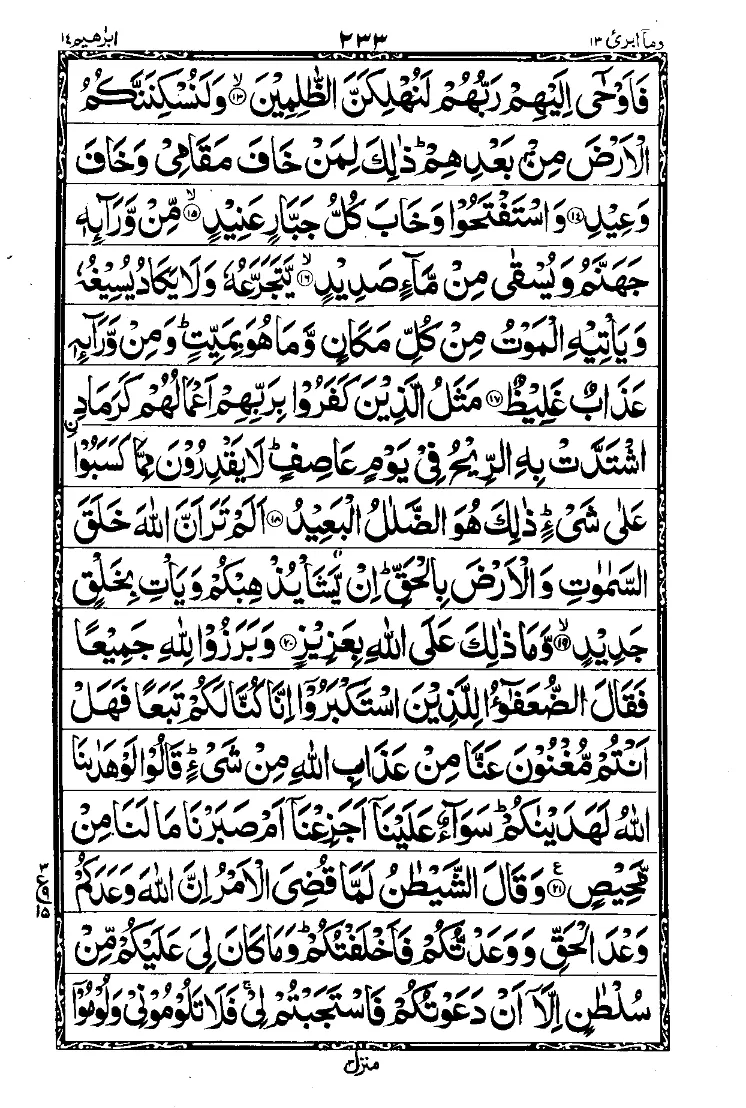 وما ابرئ ١٣ ٢٣٣ ابرٰهیم ١٤
فَاَوْحٰۤى اِلَیْهِمْ رَبُّهُمْ لَنُهْلِكَنَّ الظّٰلِمِیْنَ ۙ﴿١٣﴾ وَ لَنُسْكِنَنَّكُمُ
الْاَرْضَ مِنْۢ بَعْدِهِمْ ؕ ذٰلِكَ لِمَنْ خَافَ مَقَامِیْ وَ خَافَ
وَعِیْدِ ﴿١٤﴾ وَ اسْتَفْتَحُوْا وَ خَابَ كُلُّ جَبَّارٍ عَنِیْدٍ ۙ﴿١٥﴾ مِّنْ وَّرَآىِٕهٖ
جَهَنَّمُ وَ یُسْقٰى مِنْ مَّآءٍ صَدِیْدٍ ۙ﴿١٦﴾ یَّتَجَرَّعُهٗ وَ لَا یَكَادُ یُسِیْغُهٗ
وَ یَاْتِیْهِ الْمَوْتُ مِنْ كُلِّ مَكَانٍ وَّ مَا هُوَ بِمَیِّتٍ ؕ وَ مِنْ وَّرَآىِٕهٖ
عَذَابٌ غَلِیْظٌ ﴿١٧﴾ مَثَلُ الَّذِیْنَ كَفَرُوْا بِرَبِّهِمْ اَعْمَالُهُمْ كَرَمَادِ ِ
اشْتَدَّتْ بِهِ الرِّیْحُ فِیْ یَوْمٍ عَاصِفٍ ؕ لَا یَقْدِرُوْنَ مِمَّا كَسَبُوْا
عَلٰى شَیْءٍ ؕ ذٰلِكَ هُوَ الضَّلٰلُ الْبَعِیْدُ ﴿١٨﴾ اَلَمْ تَرَ اَنَّ اللّٰهَ خَلَقَ
السَّمٰوٰتِ وَ الْاَرْضَ بِالْحَقِّ ؕ اِنْ یَّشَاْ یُذْهِبْكُمْ وَ یَاْتِ بِخَلْقٍ
جَدِیْدٍ ۙ﴿١٩﴾ وَّ مَا ذٰلِكَ عَلَى اللّٰهِ بِعَزِیْزٍ ﴿٢٠﴾ وَ بَرَزُوْا لِلّٰهِ جَمِیْعًا
فَقَالَ الضُّعَفٰٓؤُا لِلَّذِیْنَ اسْتَكْبَرُوْۤا اِنَّا كُنَّا لَكُمْ تَبَعًا فَهَلْ
اَنْتُمْ مُّغْنُوْنَ عَنَّا مِنْ عَذَابِ اللّٰهِ مِنْ شَیْءٍ ؕ قَالُوْا لَوْ هَدٰىنَا
اللّٰهُ لَهَدَیْنٰكُمْ ؕ سَوَآءٌ عَلَیْنَاۤ اَجَزِعْنَاۤ اَمْ صَبَرْنَا مَا لَنَا مِنْ
مَّحِیْصٍ ﴿٢١﴾ ع وَ قَالَ الشَّیْطٰنُ لَمَّا قُضِیَ الْاَمْرُ اِنَّ اللّٰهَ وَعَدَكُمْ
وَعْدَ الْحَقِّ وَ وَعَدْتُّكُمْ فَاَخْلَفْتُكُمْ ؕ وَ مَا كَانَ لِیَ عَلَیْكُمْ مِّنْ
سُلْطٰنٍ اِلَّاۤ اَنْ دَعَوْتُكُمْ فَاسْتَجَبْتُمْ لِیْ ۚ فَلَا تَلُوْمُوْنِیْ وَ لُوْمُوْۤا
منزل ٣